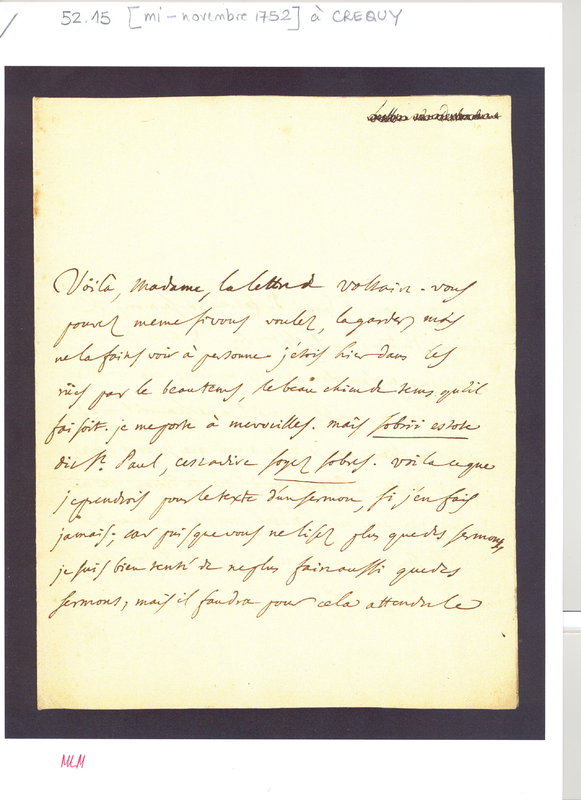 52.15 [mi-novembre 1752] à CREQUY
Voilà, Madame, la lettre de Voltaire. vous
pouvez meme si vous voulez, la garder, mais
ne la faites voir à personne. j'étois hier dans les
rües par le beau tems, le beau chien de tems qu'il
faisoit. je me porte à merveilles. mais sobrii estote
dit St. Paul, cest adire soyez sobres. voila ce que
je prendrois pour le texte d'un sermon, si j'en fais
jamais; car puisque vous ne lisez plus que des sermons,
je suis bien tenté de ne plus faire aussi que des
sermons; mais il faudra pour cela attendre le
MLM